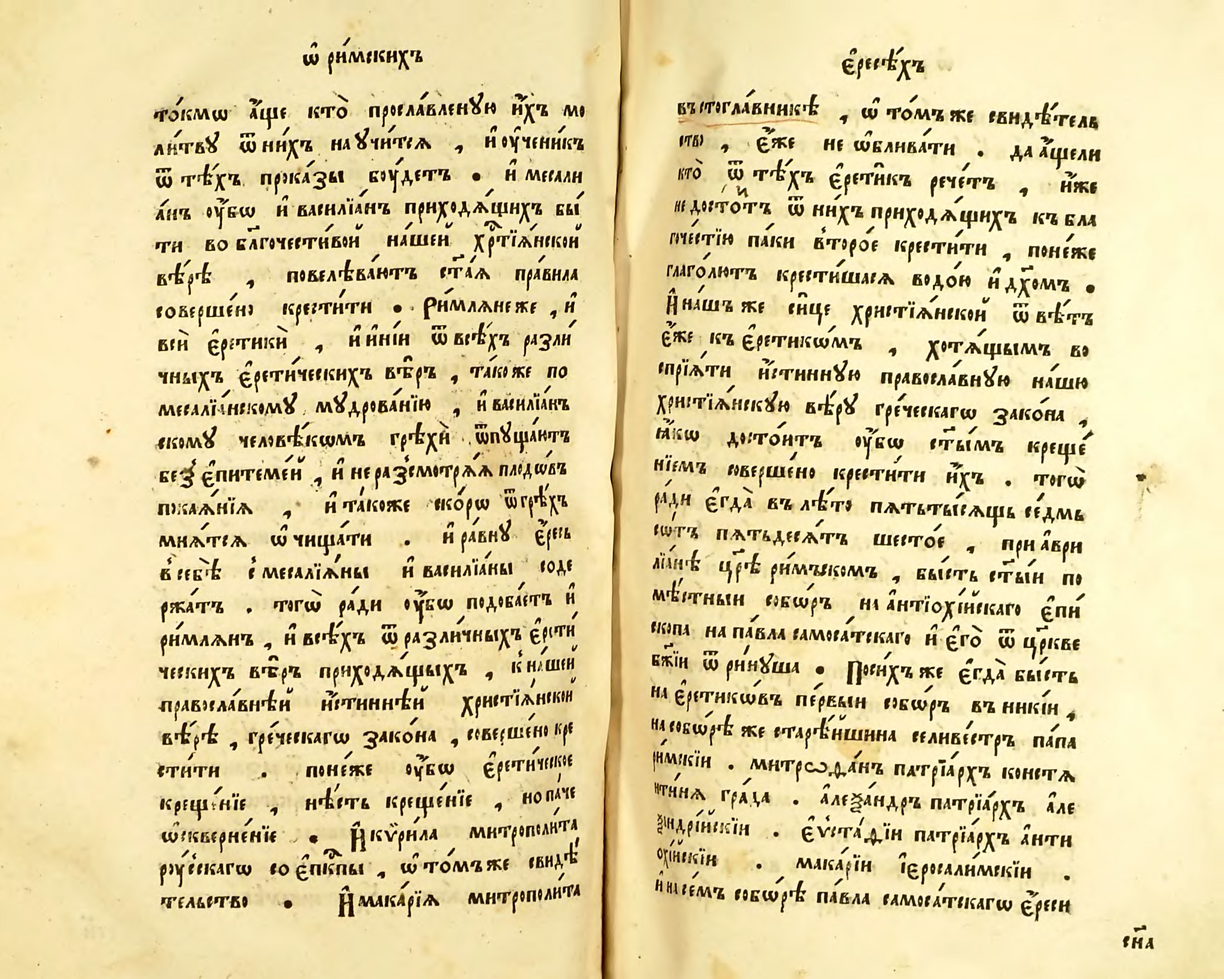 ѿ ри́мскихъ
то́кмѡ а҆́ще кто̀ просла́вленꙋю и҆́хъ мо
ли́твꙋ ѿ ни́хъ наꙋчи́тсѧ , и҆ оу҆чени́къ
ѿ тѣ́хъ прока́зы бꙋ́детъ . и҆ месалї
а́нъ оу҆́бѡ и҆ василїа́нъ приходѧ́щихъ бы́
ти во бл҃гочести́вой на́шей хр҃тїѧ́нской
вѣ́рѣ , повелѣва́ютъ ст҃а́ѧ пра́вила
соверше́но крести́ти . Ри́млѧне же , и҆
всѝ є҆ретикѝ , и҆ и҆ні́и ѿ всѣ́хъ разли́
чныхъ є҆рети́ческихъ вѣ́ръ , та́коже по
месалїа́нскомꙋ мꙋдрова́нїю , и҆ василїа́нъ
скомꙋ человѣ́кѡмъ грѣхѝ ѿпꙋща́ютъ
беꙁ̾ є҆питемѐй , и҆ не раз̾смотрѧ́ѧ плодѡ́въ
покаѧ́нїѧ , и҆ та́коже ско́рѡ ѿ грѣ́хъ
мнѧ́тсѧ ѡ҆чища́ти . и҆ ра́внꙋ є҆́ресь
в̾ себѣ̀ с̾ месалїѧ́ны и҆ василїа́ны соде
ржа́тъ . тогѡ̀ ра́ди оу҆́бѡ подоба́етъ и҆
ри́млѧнъ , и҆ всѣ́хъ ѿ разли́чныхъ є҆рети́
ческихъ вѣ́ръ приходѧ́щыхъ , к̾ на́шей
правосла́внѣй и҆́стиннѣй христїѧ́нской
вѣ́рѣ , гре́ческагѡ зако́на , соверше́но кре
сти́ти . поне́же оу҆́бѡ є҆рети́ческое
креще́нїе , нѣ́сть креще́нїе , но па́че
ѡ҆скверне́нїе . И҆ кѷри́ла митрополи́та
рꙋ́сскагѡ со є҆пⷭ҇кпы , ѡ҆ то́мъ же свидѣ́
тельство . И҆ мака́рїѧ митрополи́та
є҆ресѣ́хъ
въ стогла́вникѣ , ѡ҆ то́мъ же свидѣ́тель
ство , є҆́же не ѡ҆блива́ти . да а҆́щели
кто̀ ѿ тѣ́хъ є҆рети́къ рече́тъ , и҆́же
не досто́итъ ѿ ни́хъ приходѧ́щихъ къ бла
гоче́стїю па́ки второ́е крести́ти , поне́же
глаго́лютъ крести́шасѧ водо́ю и҆ дх҃омъ .
И҆ на́шъ же си́це христїѧ́нской ѿвѣ́тъ
є҆́же къ є҆ретикѡ́мъ , хотѧ́щымъ во
спрїѧ́ти и҆́стиннꙋю правосла́внꙋю на́шю
христїѧ́нскꙋю вѣ́рꙋ гре́ческагѡ зако́на ,
ꙗ҆́кѡ досто́итъ оу҆́бѡ ст҃ы́мъ креще́
нїемъ соверше́но крести́ти и҆́хъ . тогѡ̀
ра́ди є҆гда̀ въ лѣ́то пѧтьты́сѧщь се́дмь
сѡ́тъ пѧтьдесѧ́тъ шесто́е , при а҆ври
лїа́нѣ цр҃ѣ̀ ри́мъском , бы́сть ст҃ы́й по
мѣ́стный собо́ръ на а҆нтїохі́йскаго є҆пи́
скопа на па́вла самоса́тскаго и҆ є҆го̀ ѿ цр҃кве
бж҃їи ѿрину́ша . По си́хъ же є҆гда̀ бы́сть
на є҆ретикѡ́въ пе́рвый собо́ръ въ нике́и ,
на собо́рѣ же старѣ́йшина селиве́стръ па́па
ри́мскїй . митрофа́нъ патрїа́рхъ констѧ
нти́нѧ гра́да . а҆леѯа́ндръ патрїа́рхъ а҆ле
ѯандрі́йскїй . є҆ѵста́фїй патрїа́рхъ а҆нти
охі́йскїй . мака́рїй і҆еросали́мскїй .
и҆ на се́мъ собо́рѣ па́вла самоса́тскагѡ є҆́реси
сн҃а